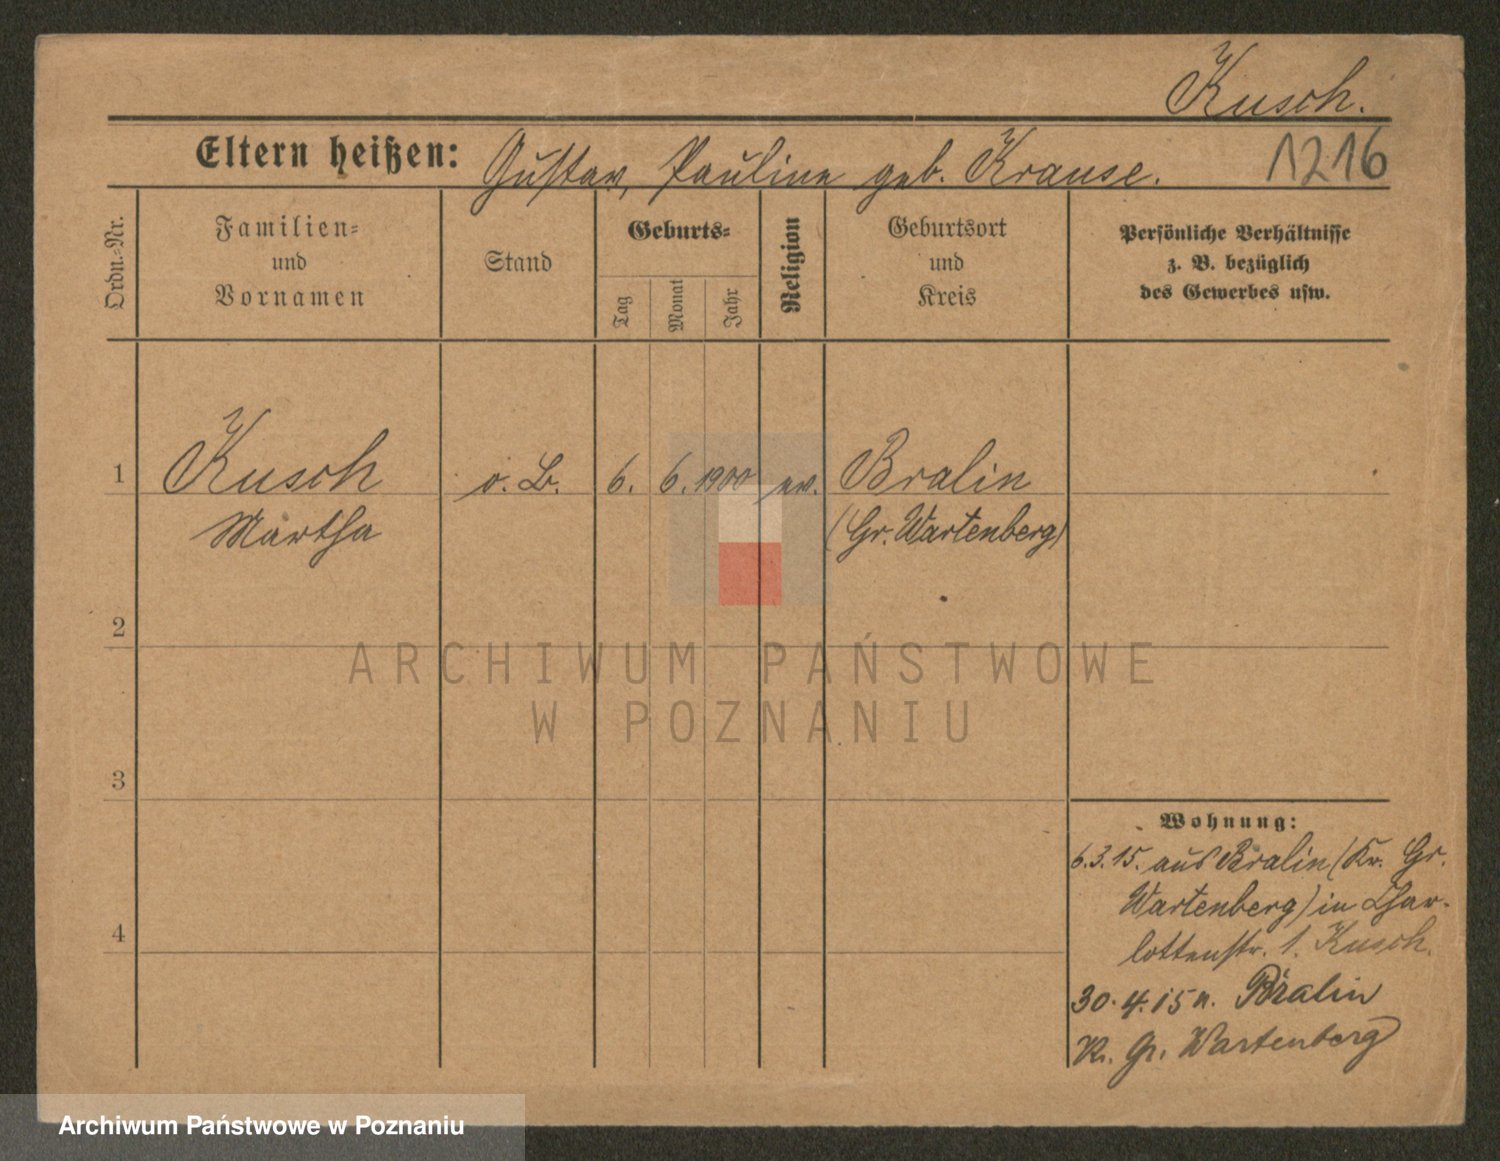 Kusch.
Eltern heißen: Gustav, Pauline geb. Krause.
1216
Ordn.=Nr.
Familien=
und
Vornamen
Stand
Geburts=
Tag
Monat
Jahr
Religion
Geburtsort
und
Kreis
Persönliche Verhältnisse
z. B. bezüglich
des Gewerbes usw.
1 Kusch o. B. 6. 6. 1900 ev. Bralin
Martha (Gr. Wartenberg)
2
ARCHIWUM PAŃSTWOWE
W POZNANIU
3
Wohnung:
6.3.15. aus Bralin (Kr. Gr.
Wartenberg) in Char-
4
lottenstr. 1. Kusch.
30.4.15 n. Bralin
Kr. Gr. Wartenberg
Archiwum Państwowe w Poznaniu